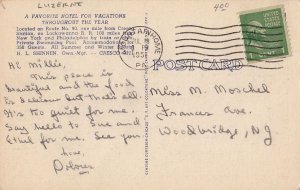 LUZERNE
400
A FAVORITE HOTEL FOR VACATIONS
THROUGHOUT THE YEAR
Located on Route 90, one mile from Cresco
Station, on Lackawanna R. R. 100 miles from
New York and Philadelphia by train or bus.
Private Swimming Pool. Accommodations for
350 Guests. All Summer and Winter Sports.
H. L. SEENEN, Own.-Mgr. — CRESCO, PA.
POSTCARD
Hi Millie,
This place is
beautiful and the food
is delicious but that's all.
It's too quiet for me.
Say hello to Sue and
Ethel for me. See you
Dolores
Miss M. Moschel
Frances Ave.
Woodbridge, NJ